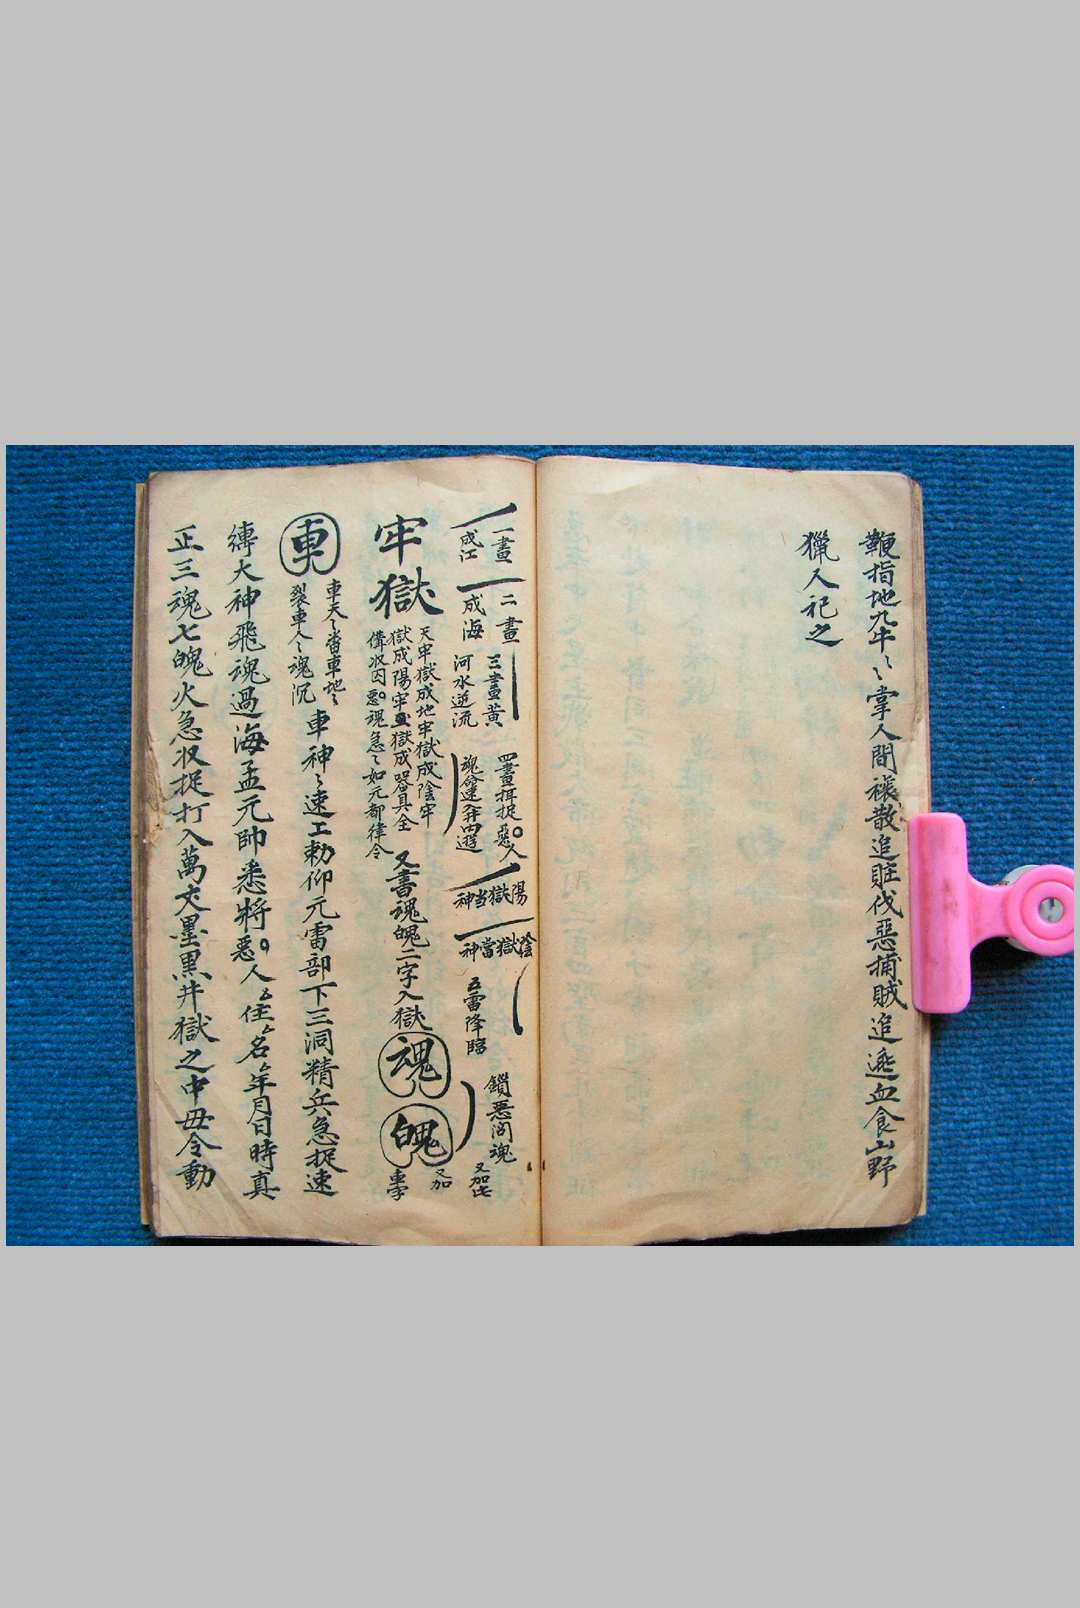 鞭指地九牛〻〻掌人間禳散追賍伐惡捕賊追遊血食山野
獵人祀之
一畫成江
二畫成海
三畫黄河水逆流
四畫揖捉惡。人魂
陽獄当神
陰獄當神
五雷降臨
鎖惡间魂
又加
牢獄
天牢獄成地牢獄成陰牢
獄成陽牢獄成器具全
俻收囚惡魂急〻如元都律令
又書魂魄二字入獄
魂
魄
又加車字
車
車天〻當車地〻
裂車人〻魂沉
車神〻速工勅仰元雷部下三洞精兵急捉速
縛大神飛魂過海孟元帥悉將惡。人〻住〻名〻年月日時真
正三魂七魄火急收捉打入萬丈墨黑井獄之中毋令動